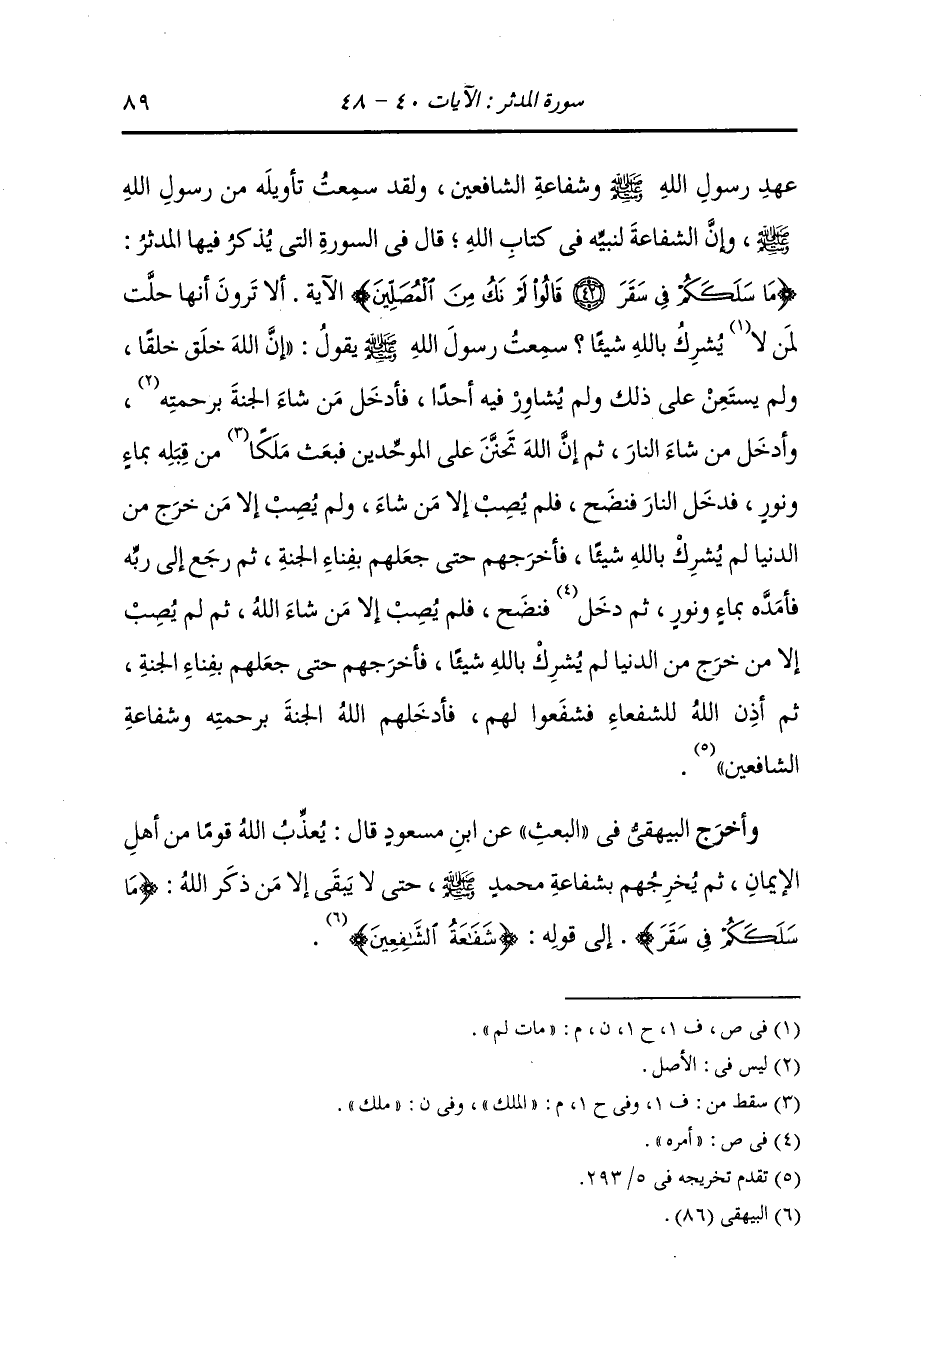 سورة المدثر : الآيات ٤٠ - ٤٨ ٨٩
عهدِ رسولِ اللهِ ﷺ وشفاعةِ الشافعين ، ولقد سمِعتُ تأويلَه من رسولِ اللهِ
ﷺ ، وإنَّ الشفاعةَ لنبيِّه فى كتابِ اللهِ ؛ قال فى السورةِ التى يُذكرُ فيها المدثرُ :
﴿مَا سَلَكَكُمْ فِي سَقَرَ ﴿٤٢﴾ قَالُوا۟ لَمْ نَكُ مِنَ ٱلْمُصَلِّينَ﴾ الآية . ألا تَرونَ أنها حلَّت
لمَن لا(١) يُشرِكُ باللهِ شيئًا ؟ سمِعتُ رسولَ اللهِ ﷺ يقولُ : «إنَّ اللهَ خلَق خلقًا ،
ولم يستَعِنْ على ذلك ولم يُشاوِرْ فيه أحدًا ، فأدخَل مَن شاءَ الجنةَ برحمتِه(٢) ،
وأدخَل من شاءَ النارَ ، ثم إنَّ اللهَ تحَنَّنَ على الموحِّدين فبعَث مَلَكًا(٣) من قِبَلِه بماءٍ
ونورٍ ، فدخَل النارَ فنضَح ، فلم يُصِبْ إلا مَن شاءَ ، ولم يُصِبْ إلا مَن خرَج من
الدنيا لم يُشرِكْ باللهِ شيئًا ، فأخرَجهم حتى جعَلهم بفِناءِ الجنةِ ، ثم رجَع إلى ربِّه
فأمَدَّه بماءٍ ونورٍ ، ثم دخَل(٤) فنضَح ، فلم يُصِبْ إلا مَن شاءَ اللهُ ، ثم لم يُصِبْ
إلا من خرَج من الدنيا لم يُشرِكْ باللهِ شيئًا ، فأخرَجهم حتى جعَلهم بفِناءِ الجنةِ ،
ثم أذِن اللهُ للشفعاءِ فشفَعوا لهم ، فأدخَلهم اللهُ الجنةَ برحمتِه وشفاعةِ
الشافعين»(٥) .
وأخرَج البيهقىُّ فى «البعثِ» عن ابنِ مسعودٍ قال : يُعذِّبُ اللهُ قومًا من أهلِ
الإيمانِ ، ثم يُخرِجُهم بشفاعةِ محمدٍ ﷺ ، حتى لا يَبقَى إلا مَن ذكَر اللهُ : ﴿مَا
سَلَكَكُمْ فِي سَقَرَ﴾ . إلى قولِه : ﴿شَفَـٰعَةُ ٱلشَّـٰفِعِينَ﴾(٦) .
(١) فى ص ، ف ١، ح ١، ن ، م : «مات لم» .
(٢) ليس فى : الأصل .
(٣) سقط من : ف ١، وفى ح ١، م : «الملك» ، وفى ن : «ملك» .
(٤) فى ص : «أمره» .
(٥) تقدم تخريجه فى ٢٩٣/٥.
(٦) البيهقى (٨٦) .